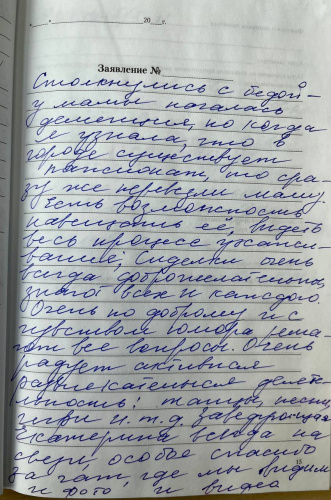 "___"____________20___г.
Заявление №
Столкнулись с бедой -
у мамы началась
деменция, но когда
я узнала, что в
городе существует
пансионат, то сра-
зу же перевезли маму.
Есть возможность
навещать её, видеть
весь процесс ухажи-
вания; Сиделки очень
всегда доброжелательны,
знают всех и каждого.
Очень по доброму и с
чувством юмора реша-
ют все вопросы. Очень
радует активная
развлекательная деяте-
льность: танцы, песни,
игры и т.д. Заведующая
Екатерина всегда на
связи, особое спасибо
за чат, где мы видим
и фото и видео
15